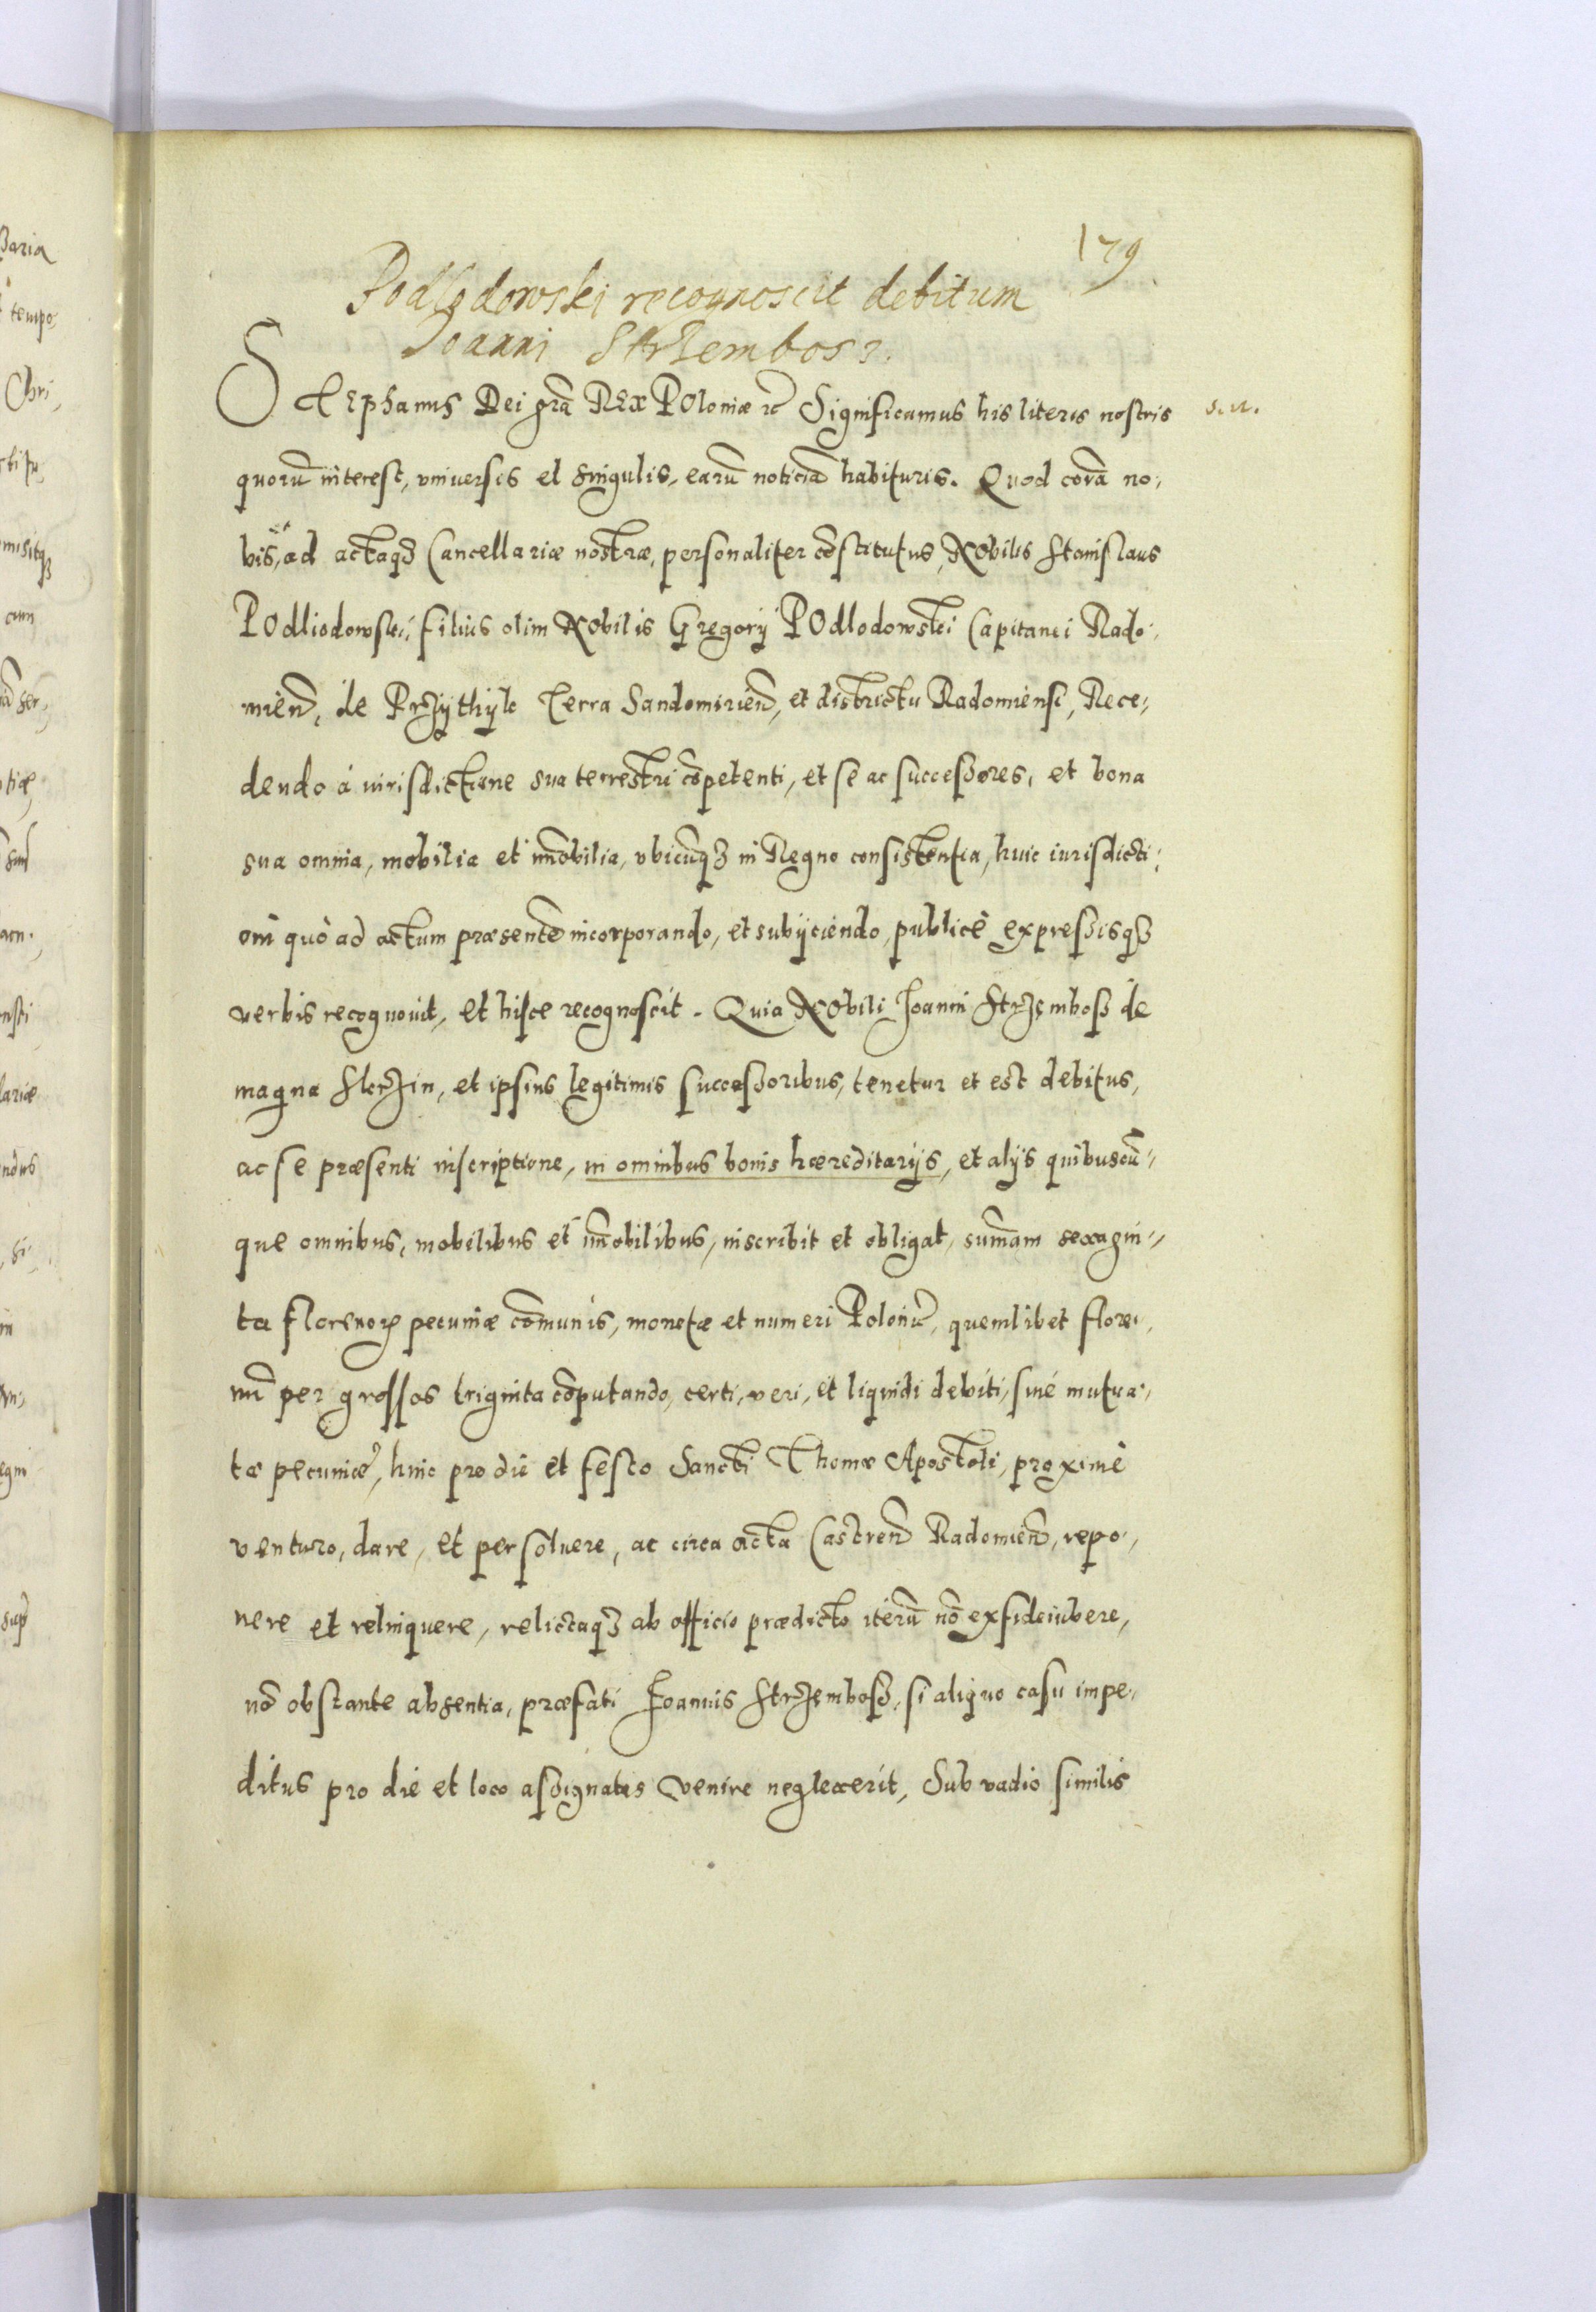 179
Podlodowski recognoscit debitum
Joanni Strzembosz.
Stephanus Dei gra͞ REx POloniæ ꝛc Significamus his literis nostris
s. u.
quorū interest, vniuersis et singulis, earū noticiā habituris. Quod corā no,
bis, ad actaqꝫ Cancellariæ nostræ, personaliter cōstitutus, NObilis Stanislaus
POdliodowski, filius olim NObilis Gregorij POdlodowski Capitanei Rado,
mieñ, de Przythyk Terra Sandomirieñ, et districtu Radomiensi, Rece,
dendo à iurisdictione sua terrestri cōpetenti, et se ac successores, et bona
sua omnia, mobilia et im̄obilia, vbicūqꝫ in Regno consistentia, huic iurisdicti,
oni quò ad actum præsentē incorporando, et subijciendo, publicè expressisqꝫ
verbis recognouit, et hisce recognoscit. Quia NObili Joanni Strzembosz de
magna Skrzin, et ipsius legitimis successoribus, tenetur et est debitus,
ac se præsenti inscriptione, in omnibus bonis hæreditarijs, et alijs quibuscū,,
que omnibus, mobilibus et im̄obilibus, inscribit et obligat, sum̄am sexagin,,
ta florenoꝝ pecuniæ cōmunis, monetæ et numeri Polonię, quemlibet flore,
nū per grossos triginta cōputando, certi, veri, et liquidi debiti, siué mutua,
tæ pecuniæ, huic pro die et festo Sancti Thomæ Apostoli, proximè
venturo, dare, et persoluere, ac circa acta Castreñ Radomieñ, repo,
nere et relinquere, relictaqꝫ ab officio prædicto iterū nō exfideiubere,
nō obstante absentia, præfati Joannis Strzembosz, si aliquo casu impe,
ditus pro die et loco assignatis venire neglexerit, Sub vadio similis